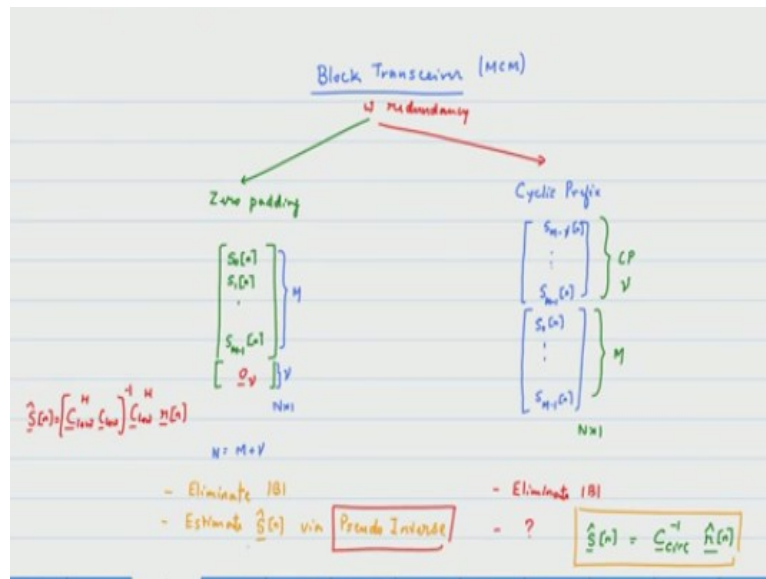 Block Transceiver (MCM)
w redundancy
Zero padding
S₀[n]
S₁[n]
⋮
S_{M-1}[n]
M
0_ν
ν
N×1
N = M+ν
Ŝ[n] = [C_low^H C_low]^{-1} C_low^H r[n]
- Eliminate IBI
- Estimate Ŝ[n] via Pseudo Inverse
Cyclic Prefix
S_{M-ν}[n]
⋮
S_{M-1}[n]
CP
ν
S₀[n]
⋮
S_{M-1}[n]
M
N×1
- Eliminate IBI
- ?
Ŝ[n] = C_circ^{-1} r̂[n]